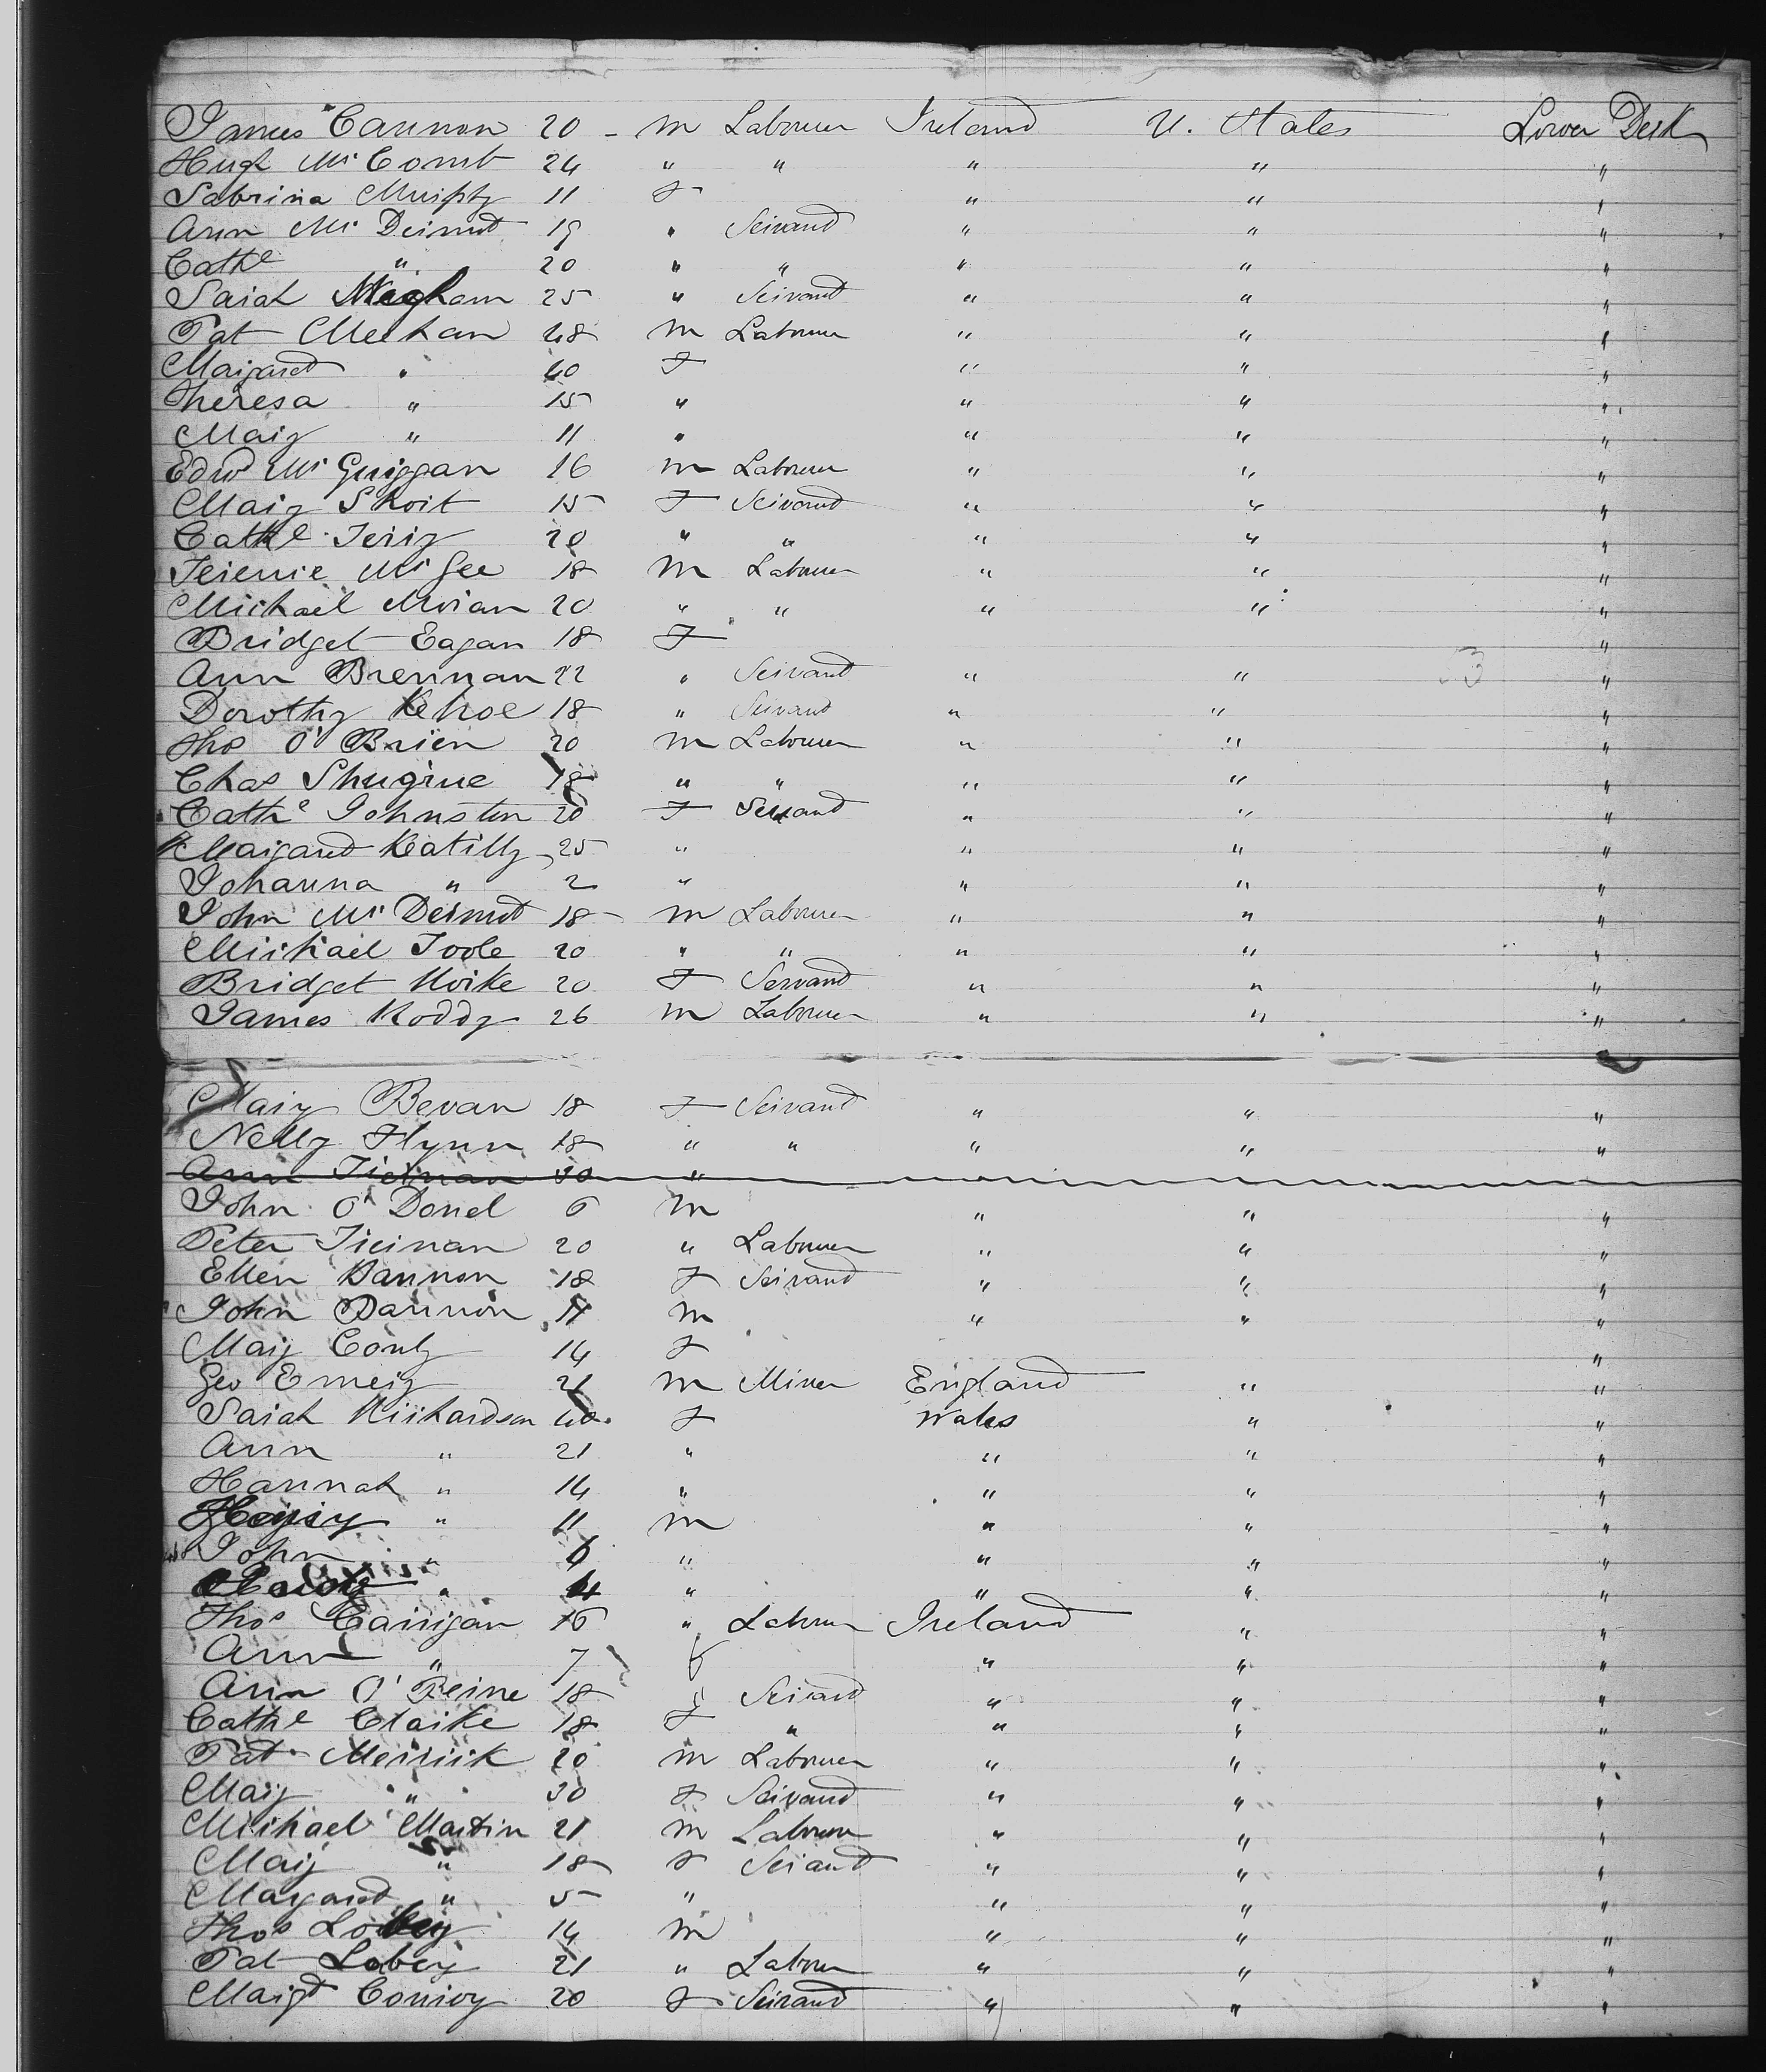 James Cannon 20 - m Labourer Ireland U. States Lower Deck
Hugh McComb 24 " " " " "
Sabrina Murphy 11 F " " "
Ann McDermot 19 " Servand " " "
Cathe " 20 " " " " "
Sarah Meghan 25 " Servand " " "
Pat Meehan 48 m Labourer " " "
Margaret " 40 F " " "
Theresa " 15 " " " "
Mary " 11 " " " "
Edwd McGuiggan 26 m Labourer " " "
Mary Short 15 F Servand " " "
Cathe Terry 20 " " " " "
Jeremie McGee 18 m Labourer " " "
Michael Moran 20 " " " " "
Bridget Eagan 18 F "
Ann Brennan 22 " Servand " " "
Dorothy Kehoe 18 " Servand " " "
Thos O'Brien 20 m Labourer " " "
Chas Shugrue 18 " " " " "
Cathe Johnston 20 F Servand " " "
Margaret 25 " " " "
Johanna " 2 " " " "
John McDermot 18 - m Labourer " " "
Michael Toole 20 " " " " "
Bridget 20 F Servand " " "
James Roddy 26 m Labourer " " "
Mary Bevan 18 F Servand " " "
Nelly Flynn 18 " " " " "
Ann Tiernan "
John O'Donel 6 m " " "
Peter Tiernan 20 " Labourer " " "
Ellen Bannon 18 F Servand " " "
John Bannon 11 m " " "
Mary 14 F "
Geo Emery 21 m Miner England " "
Sarah Richardson 40 F Wales " "
Ann " 21 " " " "
Hannah " 14 " " " "
" 11 m " " "
John " " " " "
" 4 " " " "
Thos Carrigan 16 " Labourer Ireland " "
Ann " 7 f " " "
Ann O'Beirne 18 F Servand " " "
Cathe Clarke 18 F " " " "
Pat Merrick 20 m Labourer " " "
Mary " 30 F Servand " " "
Michael Martin 21 m Labourer " " "
Mary " 18 F Servand " " "
Margaret " 5 " " " "
Thos 14 m " " "
Pat 21 " Labourer " " "
Margt Conroy 20 F Servand " " "